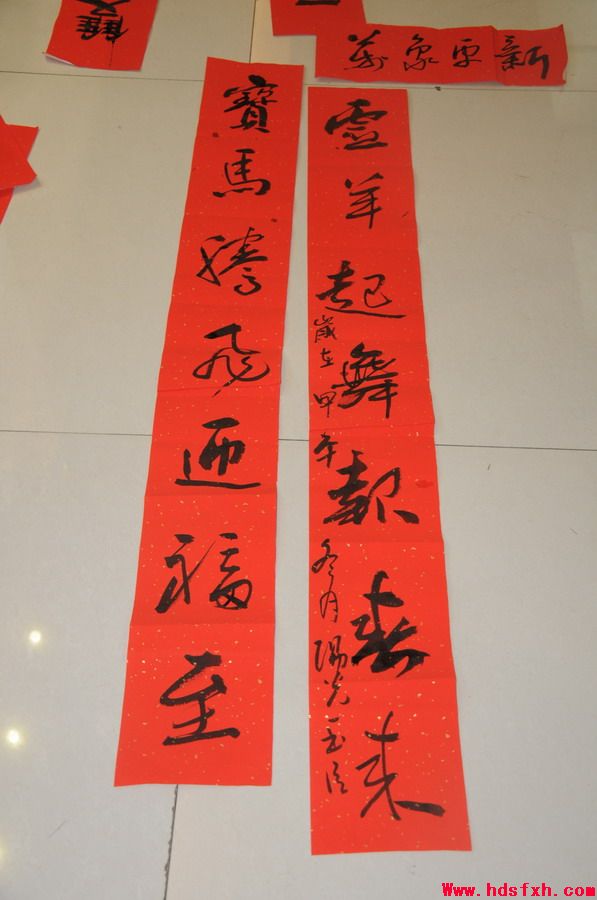 萬象更新
寶馬騰飛迎福至
霊羊起舞報春來
歲在甲午冬月陽光
Www.hdsfxh.com